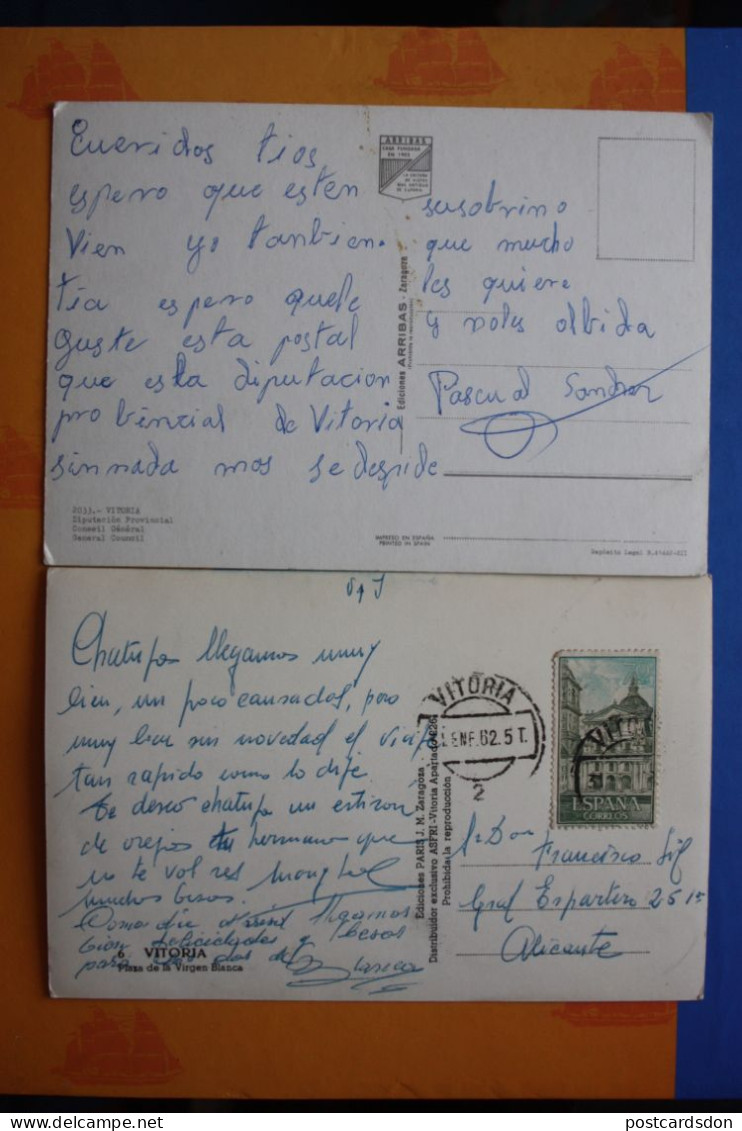 Cueridos tios
espero que esten
Vien yo tanbien.
tia espero quele
guste esta postal
que esta diputacion
probincial de Vitoria
sinnada mas se despide
ARRIBAS
CASA FUNDADA
EN 1903
Ediciones ARRIBAS - Zaragoza
susobrino
que mucho
les quiere
y noles olbida
Pascual Sanchez
2033.- VITORIA
Diputación Provincial
Conseil Général
General Council
IMPRESO EN ESPAÑA
PRINTED IN SPAIN
Depósito Legal
Chatupos llegamos muy
bien, un poco cansados, pero
muy bien sin novedad el viaje
tan rapido como lo dije.
Te deseo chatupa un estiron
de orejas tu hermano que
no te
muchos besos.
Como dice llegamos
bien felicidades y besos
para los dos de
Blanca
6 VITORIA
Plaza de la Virgen Blanca
Ediciones PARIS J. M. Zaragoza
Distribuidor exclusivo ASFRI-Vitoria Apartado 226
Prohibida la reproducción
VITORIA
ENE.62.5T.
2
VITORIA
ESPAÑA
CORREOS
Sr Don
Francisco Gil
Gral Espartero 25 1º
Alicante
postcardsdon